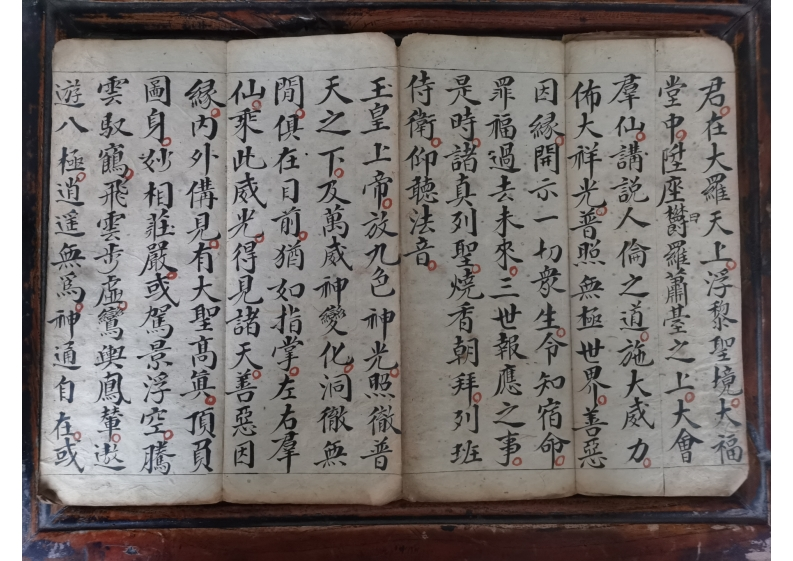 君在大羅天上浮黎聖境大福
堂中陞座鬱羅蕭臺之上大會
羣仙講説人倫之道施大威力
佈大祥光普照無極世界善惡
因緣開示一切衆生令知宿命
罪福過去未來三世報應之事
是時諸真列聖燒香朝拜列班
侍衛仰聽法音
玉皇上帝放九色神光照徹普
天之下及萬威神變化洞徹無
閒俱在目前猶如指掌左右羣
仙乘此威光得見諸天善惡因
緣内外俻見有大聖高真頂負
圖身妙相莊嚴或駕景浮空騰
雲馭鶴飛雲步虛鸞輿鳳輦遨
遊八極逍遥無爲神通自在或